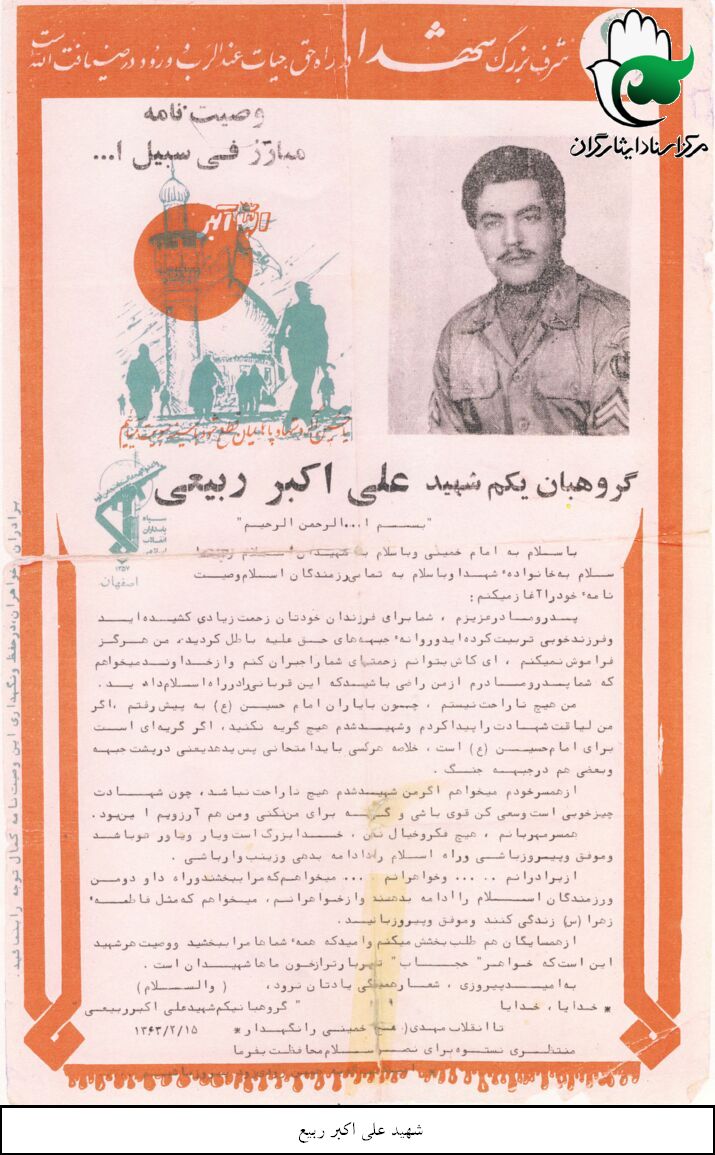 شرف بزرگ شهدا در راه حق، حیات عندالرب و ورود در ضیافت الله است
مرکز اسناد ایثارگران
وصیت نامه
مبارز فی سبیل ا...
الله اکبر
گروهبان یکم شهید علی اکبر ربیعی
سپاه
پاسداران
انقلاب
اسلامی
۱۳۵۷
اصفهان
"بسم ا...الرحمن الرحیم"
باسلام به امام خمینی وباسلام به شهیدان
سلام به خانواده شهدا وباسلام به تمامی رزمندگان اسلام وصیت
نامه خود را آغاز میکنم:
پدر و مادر عزیزم ، شما برای فرزندان خودتان زحمت زیادی کشیده اید
و فرزند خوبی تربیت کرده اید و روانه جبهه های حق علیه باطل کردید، من هرگز
فراموش نمیکنم ، ای کاش بتوانم زحمتهای شما را جبران کنم و از خداوند میخواهم
که شما پدر و مادرم از من راضی باشید که این قربانی را در راه اسلام داده ید .
من هیچ ناراحت نیستم ، چون با یاران امام حسین (ع) به پیش رفتم ، اگر
من لیاقت شهادت را پیدا کردم و شهید شدم هیچ گریه نکنید، اگر گریه ای است
برای امام حسین (ع) است ، خلاصه هر کسی باید امتحانی پس بدهد یعنی در پشت جبهه
وبعضی هم در جبهه جنگ .
از همسر خودم میخواهم اگر من شهید شدم هیچ ناراحت نباشد، چون شهادت
چیز خوبی است و سعی کن قوی باشی و گریه برای من نکنی و من هم آرزویم این بود.
همسر مهربانم ، هیچ فکر و خیال نکن ، خدا بزرگ است و یار و یاور تو باشد
وموفق و پیروز باشی و راه اسلام را ادامه بدهی و زینب وار باشی .
از برادرانم ... و خواهرانم ... میخواهم که مرا ببخشند و راه
ورزمندگان اسلام را ادامه بدهند و از خواهرانم، میخواهم که مثل فاطمه
زهرا (س) زندگی کنند و موفق و پیروز باشید.
از همسایگان هم طلب بخشش میکنم و امید که همه شماها مرا ببخشید و وصیت هر شهید
این است که خواهر "حجاب" تو پربارتر از خون ما شهیدان است .
به امید پیروزی ، شعار همیشگی یادتان نرود، (والسلام)
* خدایا، خدایا " گروهبان یکم شهید علی اکبر ربیعی
تا انقلاب مهدی (عج) خمینی را نگهدار * ۱۳۶۳/۲/۱۵
منتظری نستوه برای اسلام محافظت بفرما
برادران و خواهران، در حفظ و نگهداری این وصیت نامه کمال توجه را بنمائید.
شهید علی اکبر ربیع